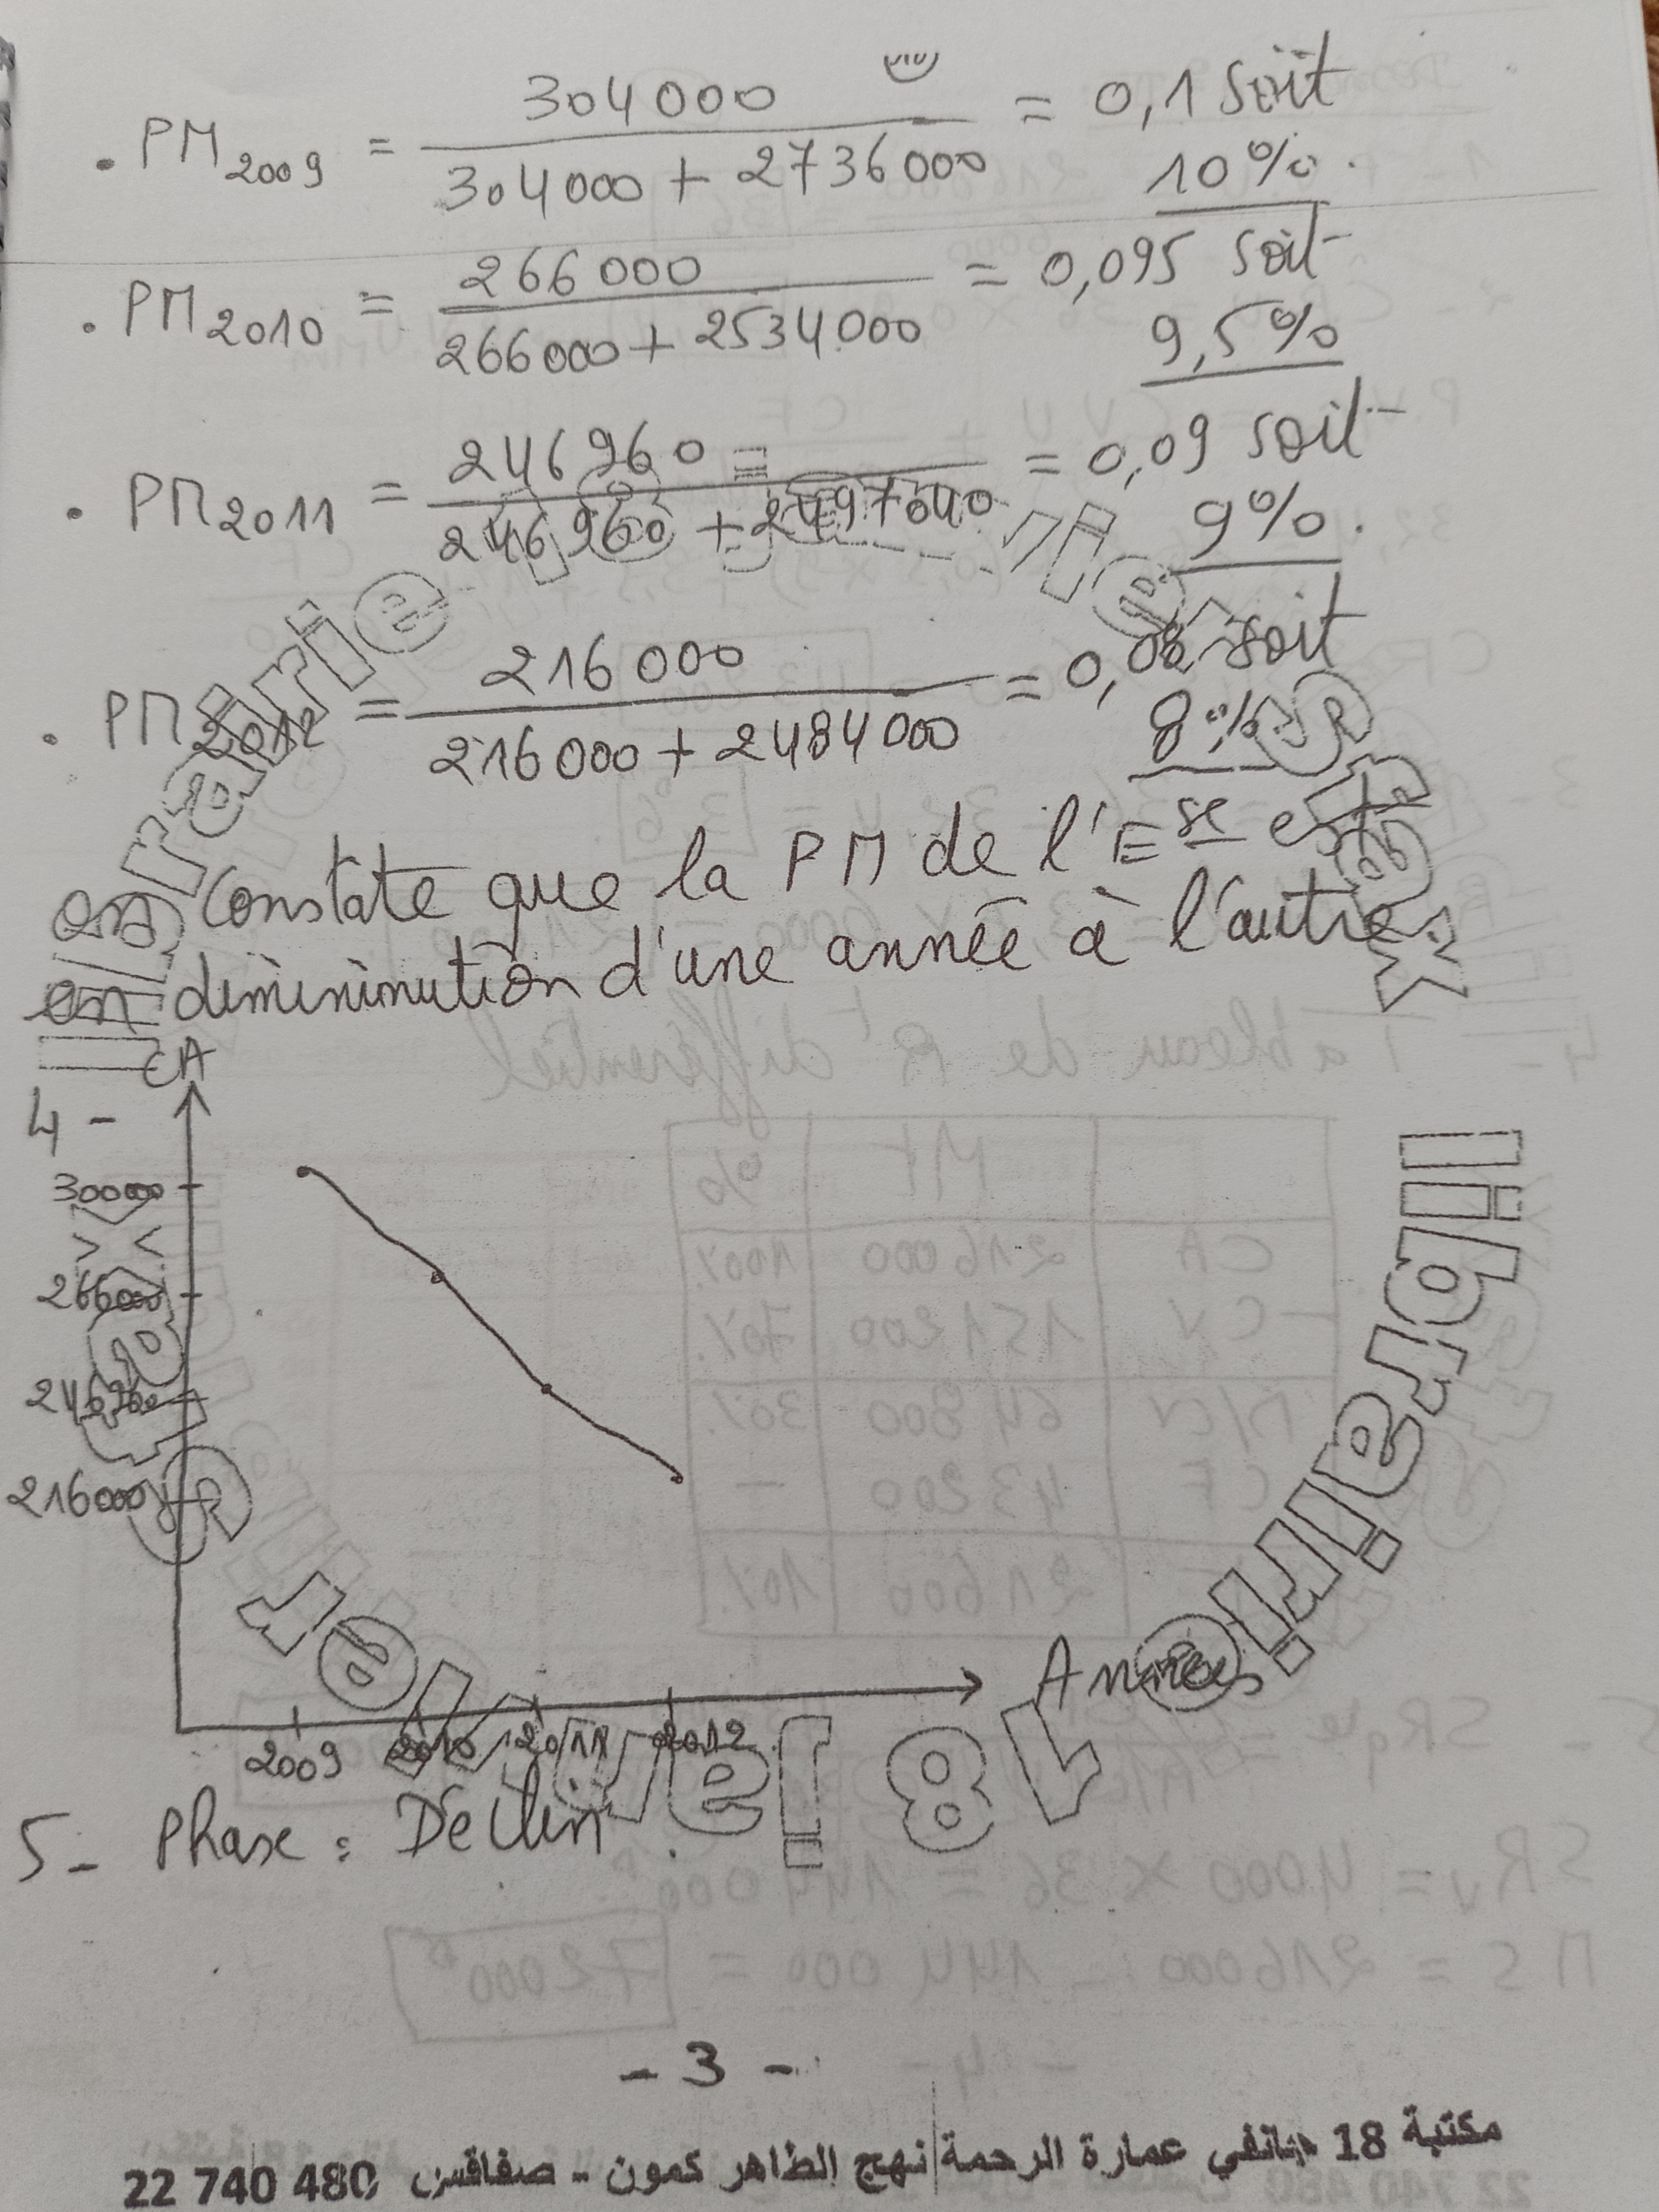 . PM2009 = 304000 / 304000 + 2736000 = 0,1 soit 10%.
. PM2010 = 266000 / 266000 + 2534000 = 0,095 soit 9,5%
. PM2011 = 246960 / 246960 + 2497040 = 0,09 soit 9%.
. PM2012 = 216000 / 216000 + 2484000 = 0,08 soit 8%
on constate que la PM de l'Ese est
en dimininution d'une année à l'autre
4-
CA
266000
246960
216000
2009 2010 2011 2012
Années
5- Phase : Déclin.
librairie 18 janvier Sfax
- 3 -
مكتبة 18 جانفي عمارة الرحمة نهج الطاهر كمون - صفاقس 22 740 480